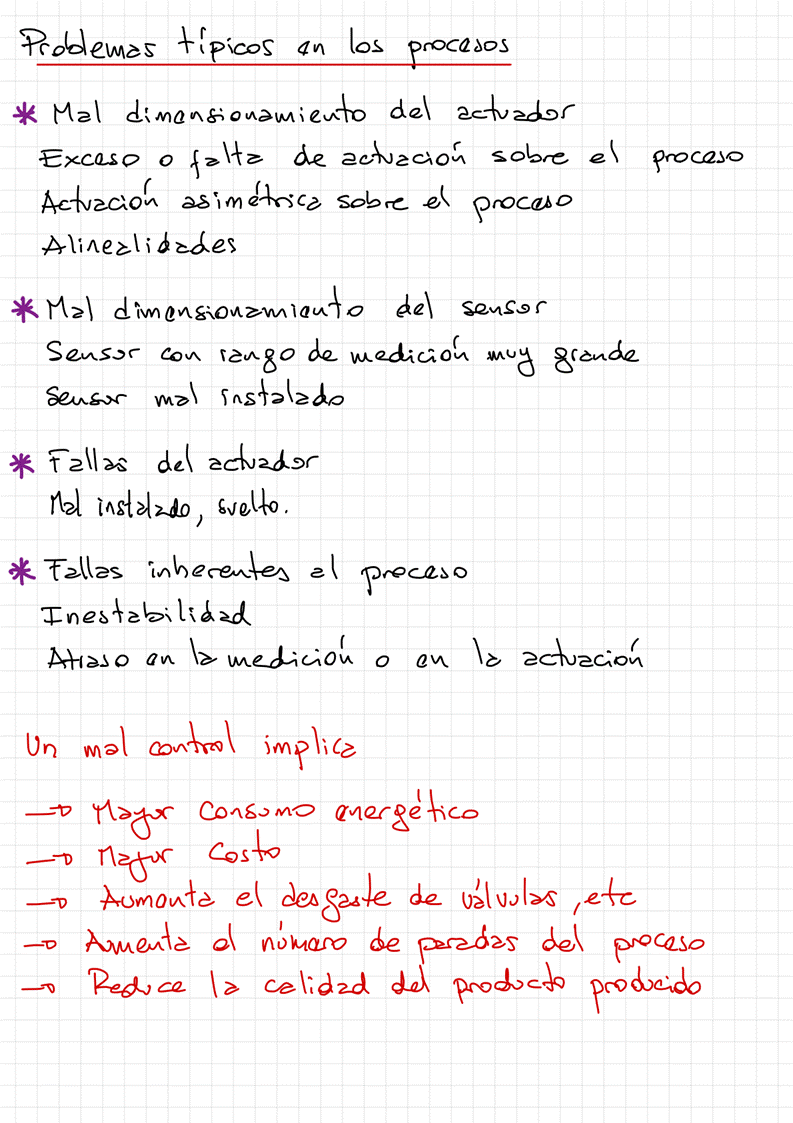 Problemas típicos en los procesos
* Mal dimensionamiento del actuador
Exceso o falta de actuación sobre el proceso
Actuación asimétrica sobre el proceso
Alinealidades
* Mal dimensionamiento del sensor
Sensor con rango de medición muy grande
Sensor mal instalado
* Fallas del actuador
Mal instalado, suelto.
* Fallas inherentes al proceso
Inestabilidad
Atraso en la medición o en la actuación
Un mal control implica
→ Mayor consumo energético
→ Mayor costo
→ Aumenta el desgaste de válvulas, etc
→ Aumenta el número de paradas del proceso
→ Reduce la calidad del producto producido